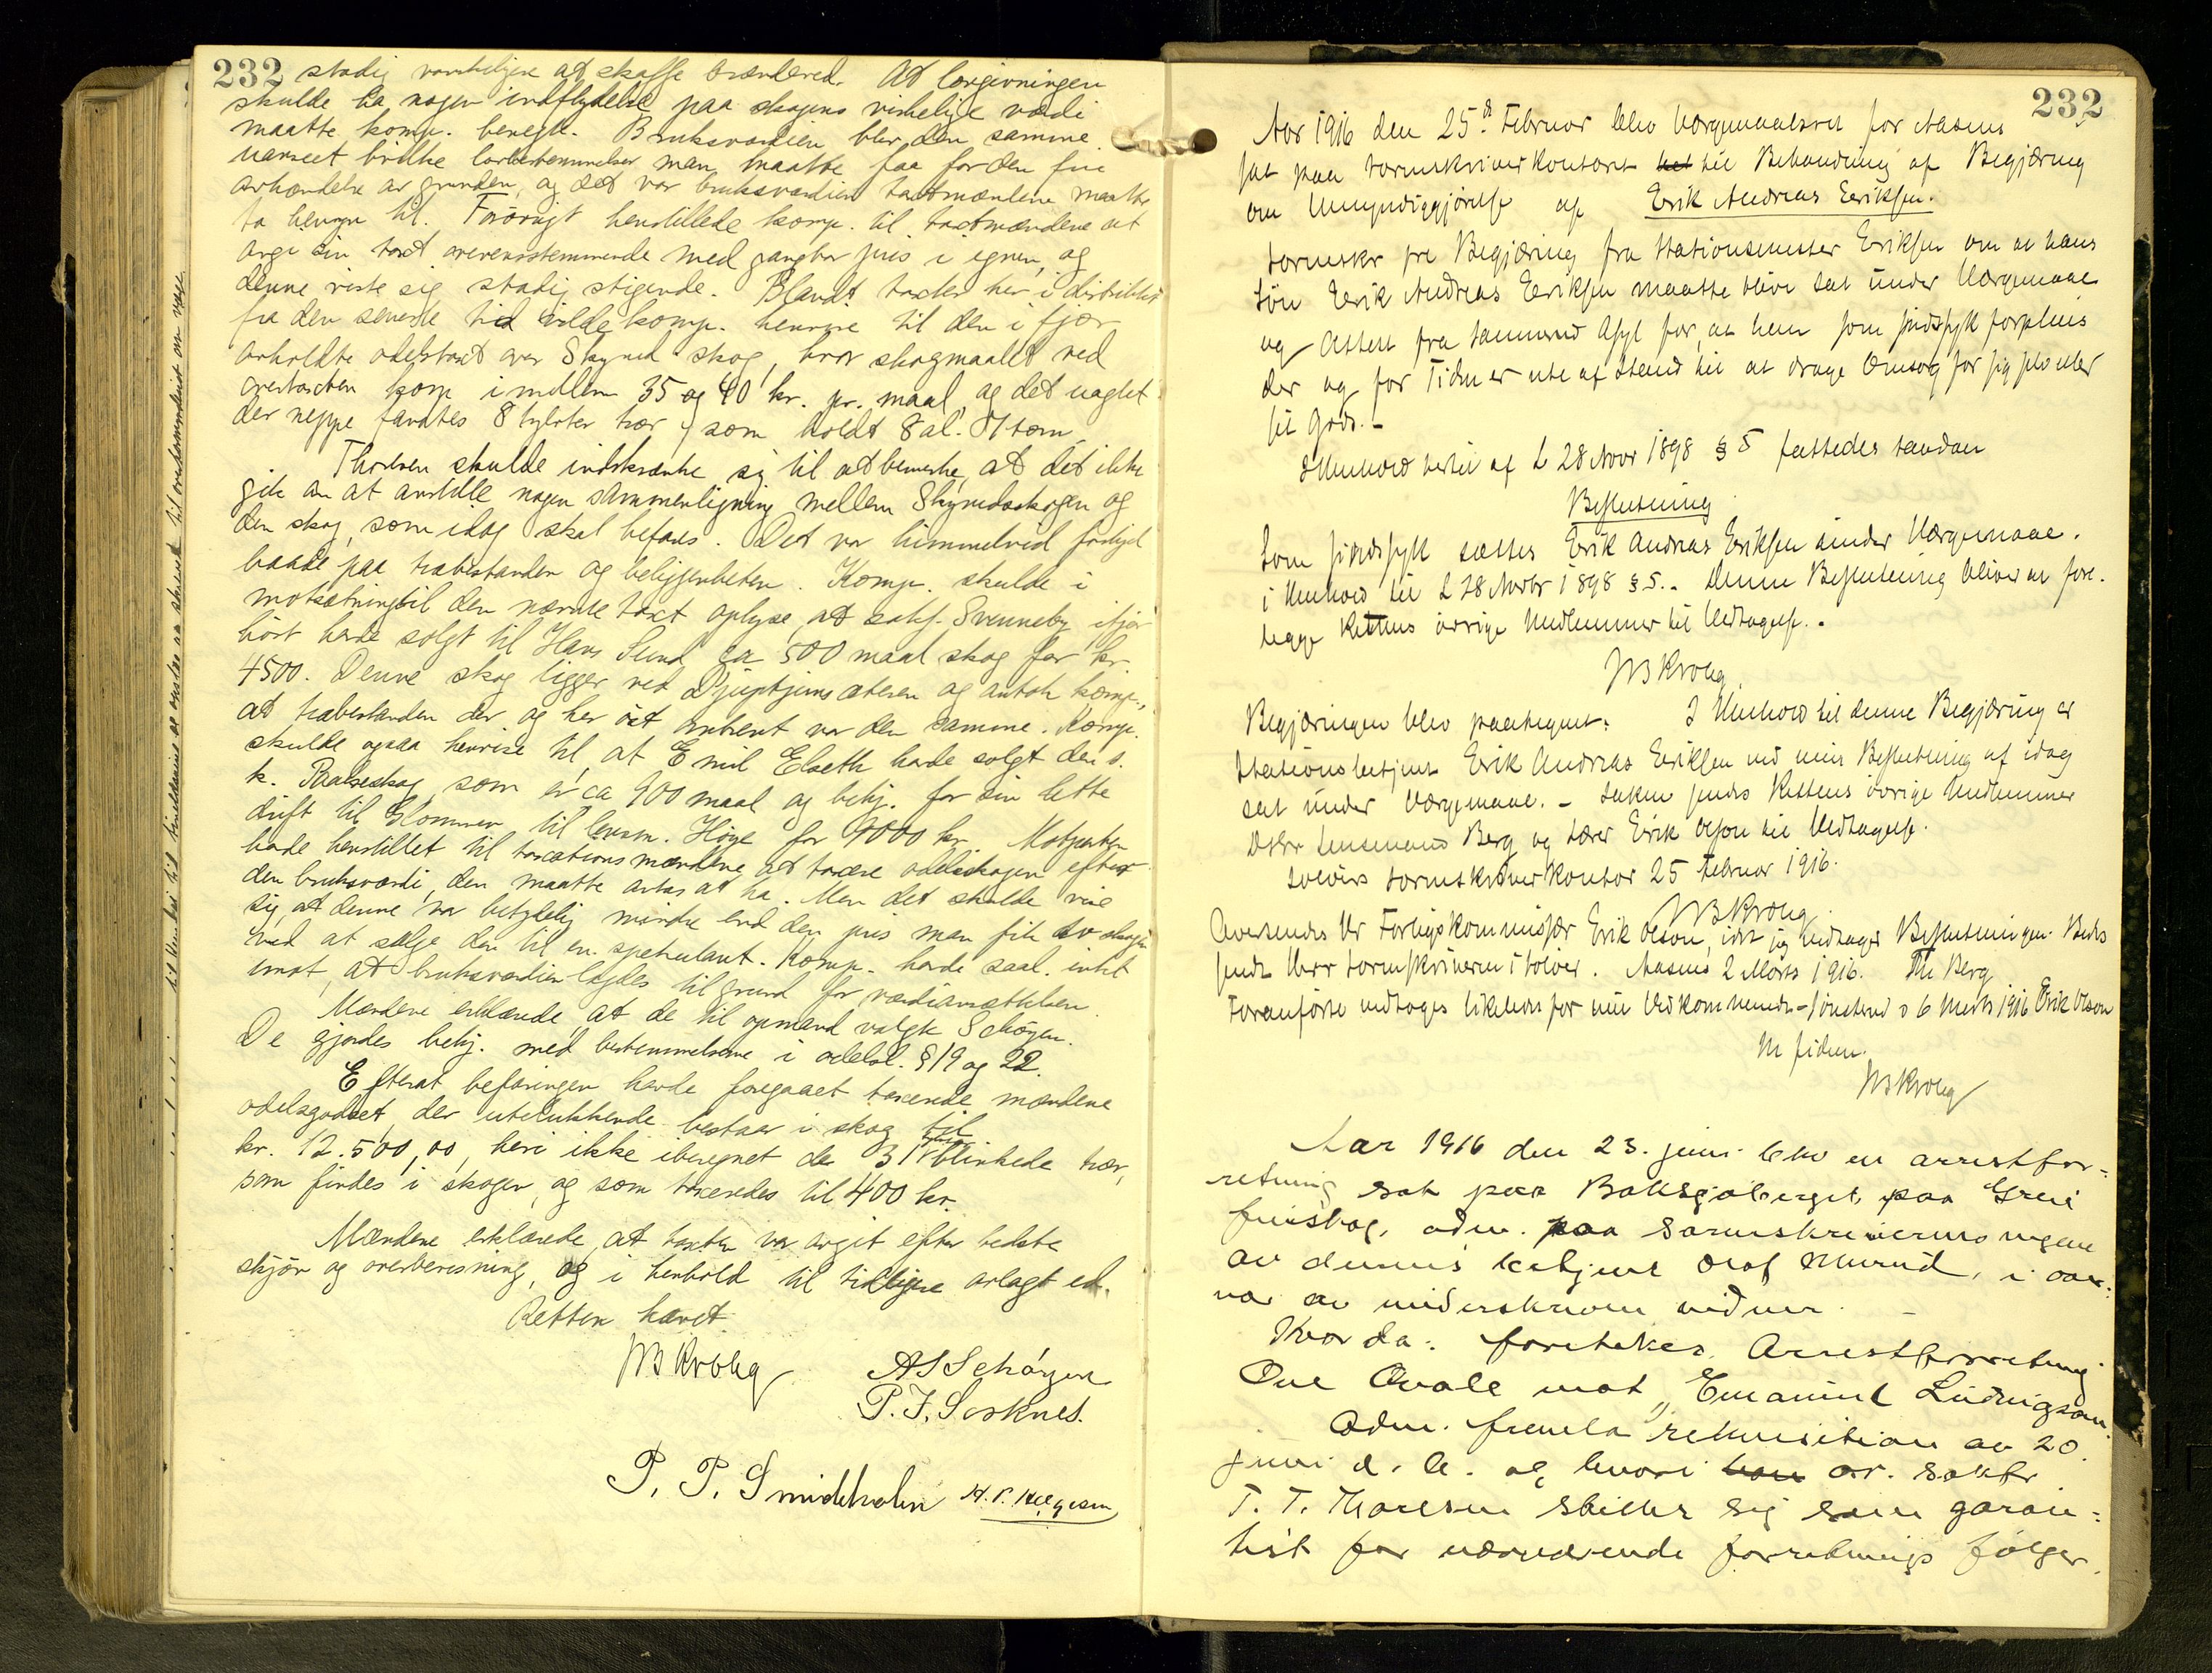 232 stadig vanskeligere at skaffe brændeved. At lovgivningen
skulde ha nogen indflydelse paa skogens virkelige værdi
maatte komp. benegte. Bruksværdien blev den samme
uanseet hvilke lovbestemmelser man maatte faa for den frie
avhændelse av grunden, og det var bruksværdien taxtmændene maatte
ta hensyn til. Forövrigt henstillede komp. til taxtmændene at
avgi sin taxt overensstemmende med gangbar pris i egnen, og
denne viste sig stadig stigende. Blandt taxter her i distriktet
fra den seneste tid vilde komp. henvise til den i fjor
avholdte odelstaxt over Skyrud skog, hvor skogmaalet ved
overtaxten kom imellem 35 og 40 kr. pr. maal, og det uagtet
der neppe fandtes 8 tylvter trær, som holdt 8 al. 7 tom.
Thoresen skulde indskrænke sig til at bemerke, at det ikke
gik an at anstille nogen sammenligning mellem Skyrudskogen og
den skog, som idag skal befares. Det var himmelvid forskjel
baade paa træbestanden og beliggenheten. Komp. skulde i
motsætning til den nævnte taxt oplyse, at sakf. Svenneby ifjor
höst havde solgt til Hans Lund ca 500 maal skog for kr.
4500. Denne skog ligger ved Djuptjernsæteren og antok komp.,
at træbestanden der og her öst omtrent var den samme. Komp.
skulde ogsaa henvise til, at Emil Elseth hade solgt den s.
k. Paalseskog, som er ca 900 maal og bekj. for sin lette
drift til Glommen til lensm. Høye for 9000 kr. Motparten
hade henstillet til taxationsmændene at taxere odelsskogen efter
den bruksværdi, den maatte antas at ha. Men det skulde vise
sig, at denne var betydelig mindre end den pris man fik av skogen
ved at sælge den til en spekulant. Komp. havde saal. intet
imot, at bruksværdien lagdes til grund for værdiansættelsen.
Mændene erklærede, at de til opmand valgte Schøyen.
De gjordes bekj. med bestemmelserne i odelsl. § 19 og 22.
Efterat befaringen havde foregaaet taxerede mændene
odelsgodset, der utelukkende bestaar i skog til
kr. 12.500,00, heri ikke iberegnet de 31 blinkede trær,
som findes i skogen, og som taxeredes til 400 kr.
Mændene erklærede, at taxten var avgit efter bedste
skjön og overbevisning, og i henhold til tidligere avlagt ed.
Retten hævet.
JB Krohg A S Schøyen
P. J. Sorknes.
P. P. Smidtholen
232
Aar 1916 den 25de Februar blev Værgemaalsret for Aasnes
sat paa Sorenskriverkontoret til Behandling af Begjæring
om Umyndiggjörelse af Erik Andreas Eriksen.
Sorenskr fr Begjæring fra Stationsmester Eriksen om at hans
Sön Erik Andreas Eriksen maatte blive sat under Værgemaal
og Attest fra Sannerud Asyl for, at han som sindssyk forpleies
der og for Tiden er ute af Stand til at drage Omsorg for sig selv eller
sit Gods.-
I Henhold hertil af L 28 Novr 1898 § 5 fattedes saadan
Beslutning
Som sindssyk sættes Erik Andreas Eriksen under Værgemaal.
i Henhold til L 28 Novbr 1898 § 5.- Denne Beslutning bliver at fore-
lægge Rettens övrige Medlemmer til Vedtagelse.-
JB Krohg.
Begjæringen blev paategnet: I Henhold til denne Begjæring er
Stationsbetjent Erik Andreas Eriksen ved min Beslutning af idag
sat under Værgemaal.- Saken sendes Rettens övrige Medlemmer
Lensmand Berg og Lærer Erik Olson til Vedtagelse.
Solörs Sorenskriverkontor 25 Februar 1916.
JB Krohg
Oversendes Hr Forligskommisær Erik Olson, idet jeg vedtager Beslutningen. Bedes
sendt Herr Sorenskriveren i Solör. Aasnes 2 Marts 1916. Berg
Foranförte vedtages likeledes for mit Vedkommende - 6 Marts 1916 Erik Olson
JB Krohg
Aar 1916 den 23. juni blev en arrestfor-
retning sat paa Baksjøberget paa Grue
finskog, adm. paa sorenskriverens vegne
av dennes betjent Olaf Murud, i over-
vær av underskrevne vidner.-
Hvorda: foretokes Arrestforretning
Ove Qvale mot Emanuel Ludvigsen.
Adm. fremla rekvisition av 20
juni d. A. og hvori or. sakfr
T. T. Thoresen stiller sig som garan-
tist for nærværende forretnings følger.